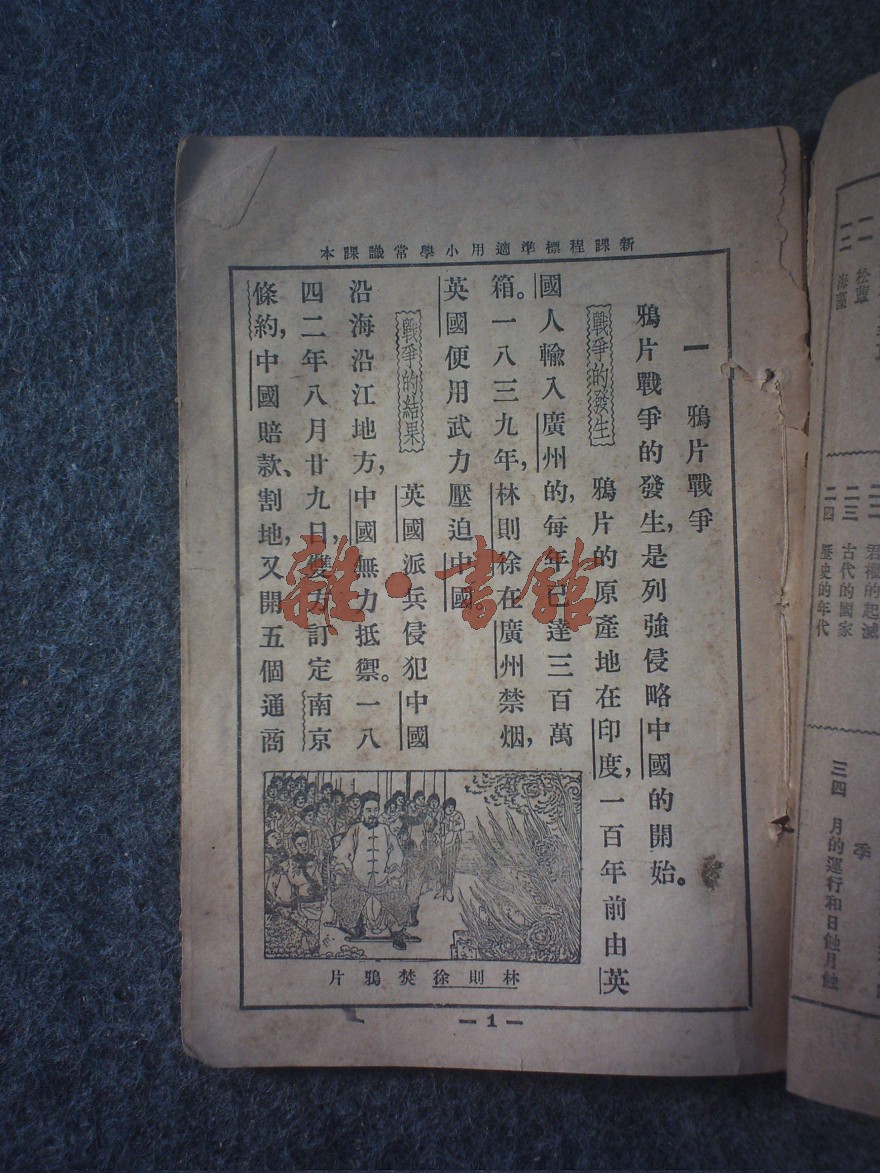 新課程標準適用小學常識課本
一　鴉片戰爭
鴉片戰爭的發生,是列強侵略中國的開始。
戰爭的發生　鴉片的原產地在印度,一百年前由英
國人輸入廣州的,每年已達三百萬
箱。一八三九年,林則徐在廣州禁烟,
英國便用武力壓迫中國。
戰爭的結果　英國派兵侵犯中國
沿海沿江地方,中國無力抵禦。一八
四二年八月廿九日,雙方訂定南京
條約,中國賠款、割地,又開五個通商
林則徐焚鴉片
—1—
雜·書館
海藻
君權的起滅
二三　古代的國家
二四　歷史的年代
季
三四　月的運行和日蝕月蝕